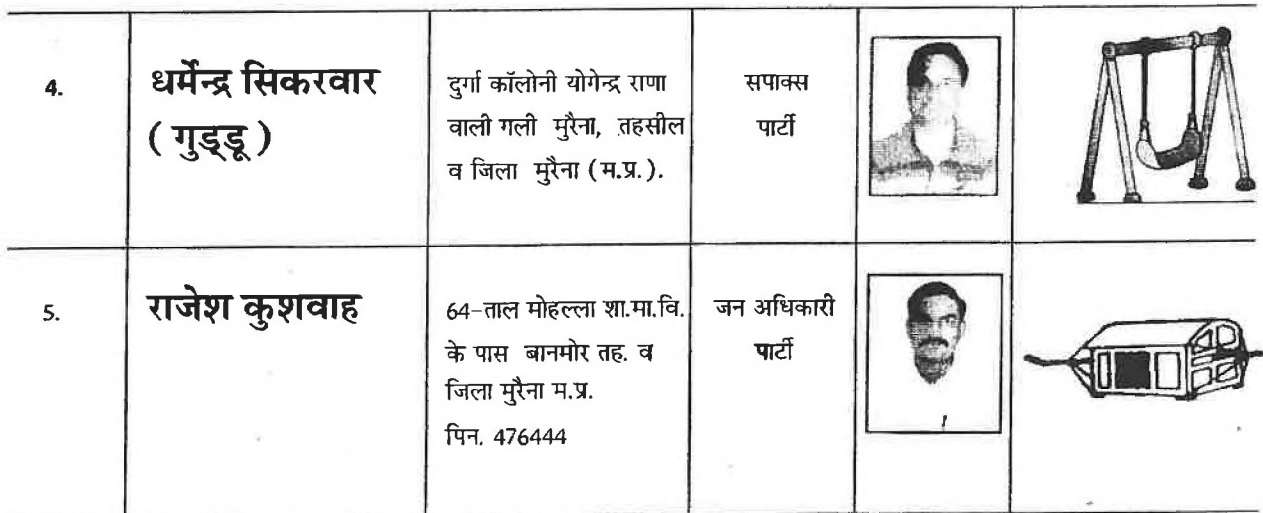 4.
धर्मेन्द्र सिकरवार
( गुड्डू )
दुर्गा कॉलोनी योगेन्द्र राणा
वाली गली मुरैना, तहसील
व जिला मुरैना (म.प्र.).
सपाक्स
पार्टी
5.
राजेश कुशवाह
64-ताल मोहल्ला शा.मा.वि.
के पास बानमोर तह. व
जिला मुरैना म.प्र.
पिन. 476444
जन अधिकारी
पार्टी